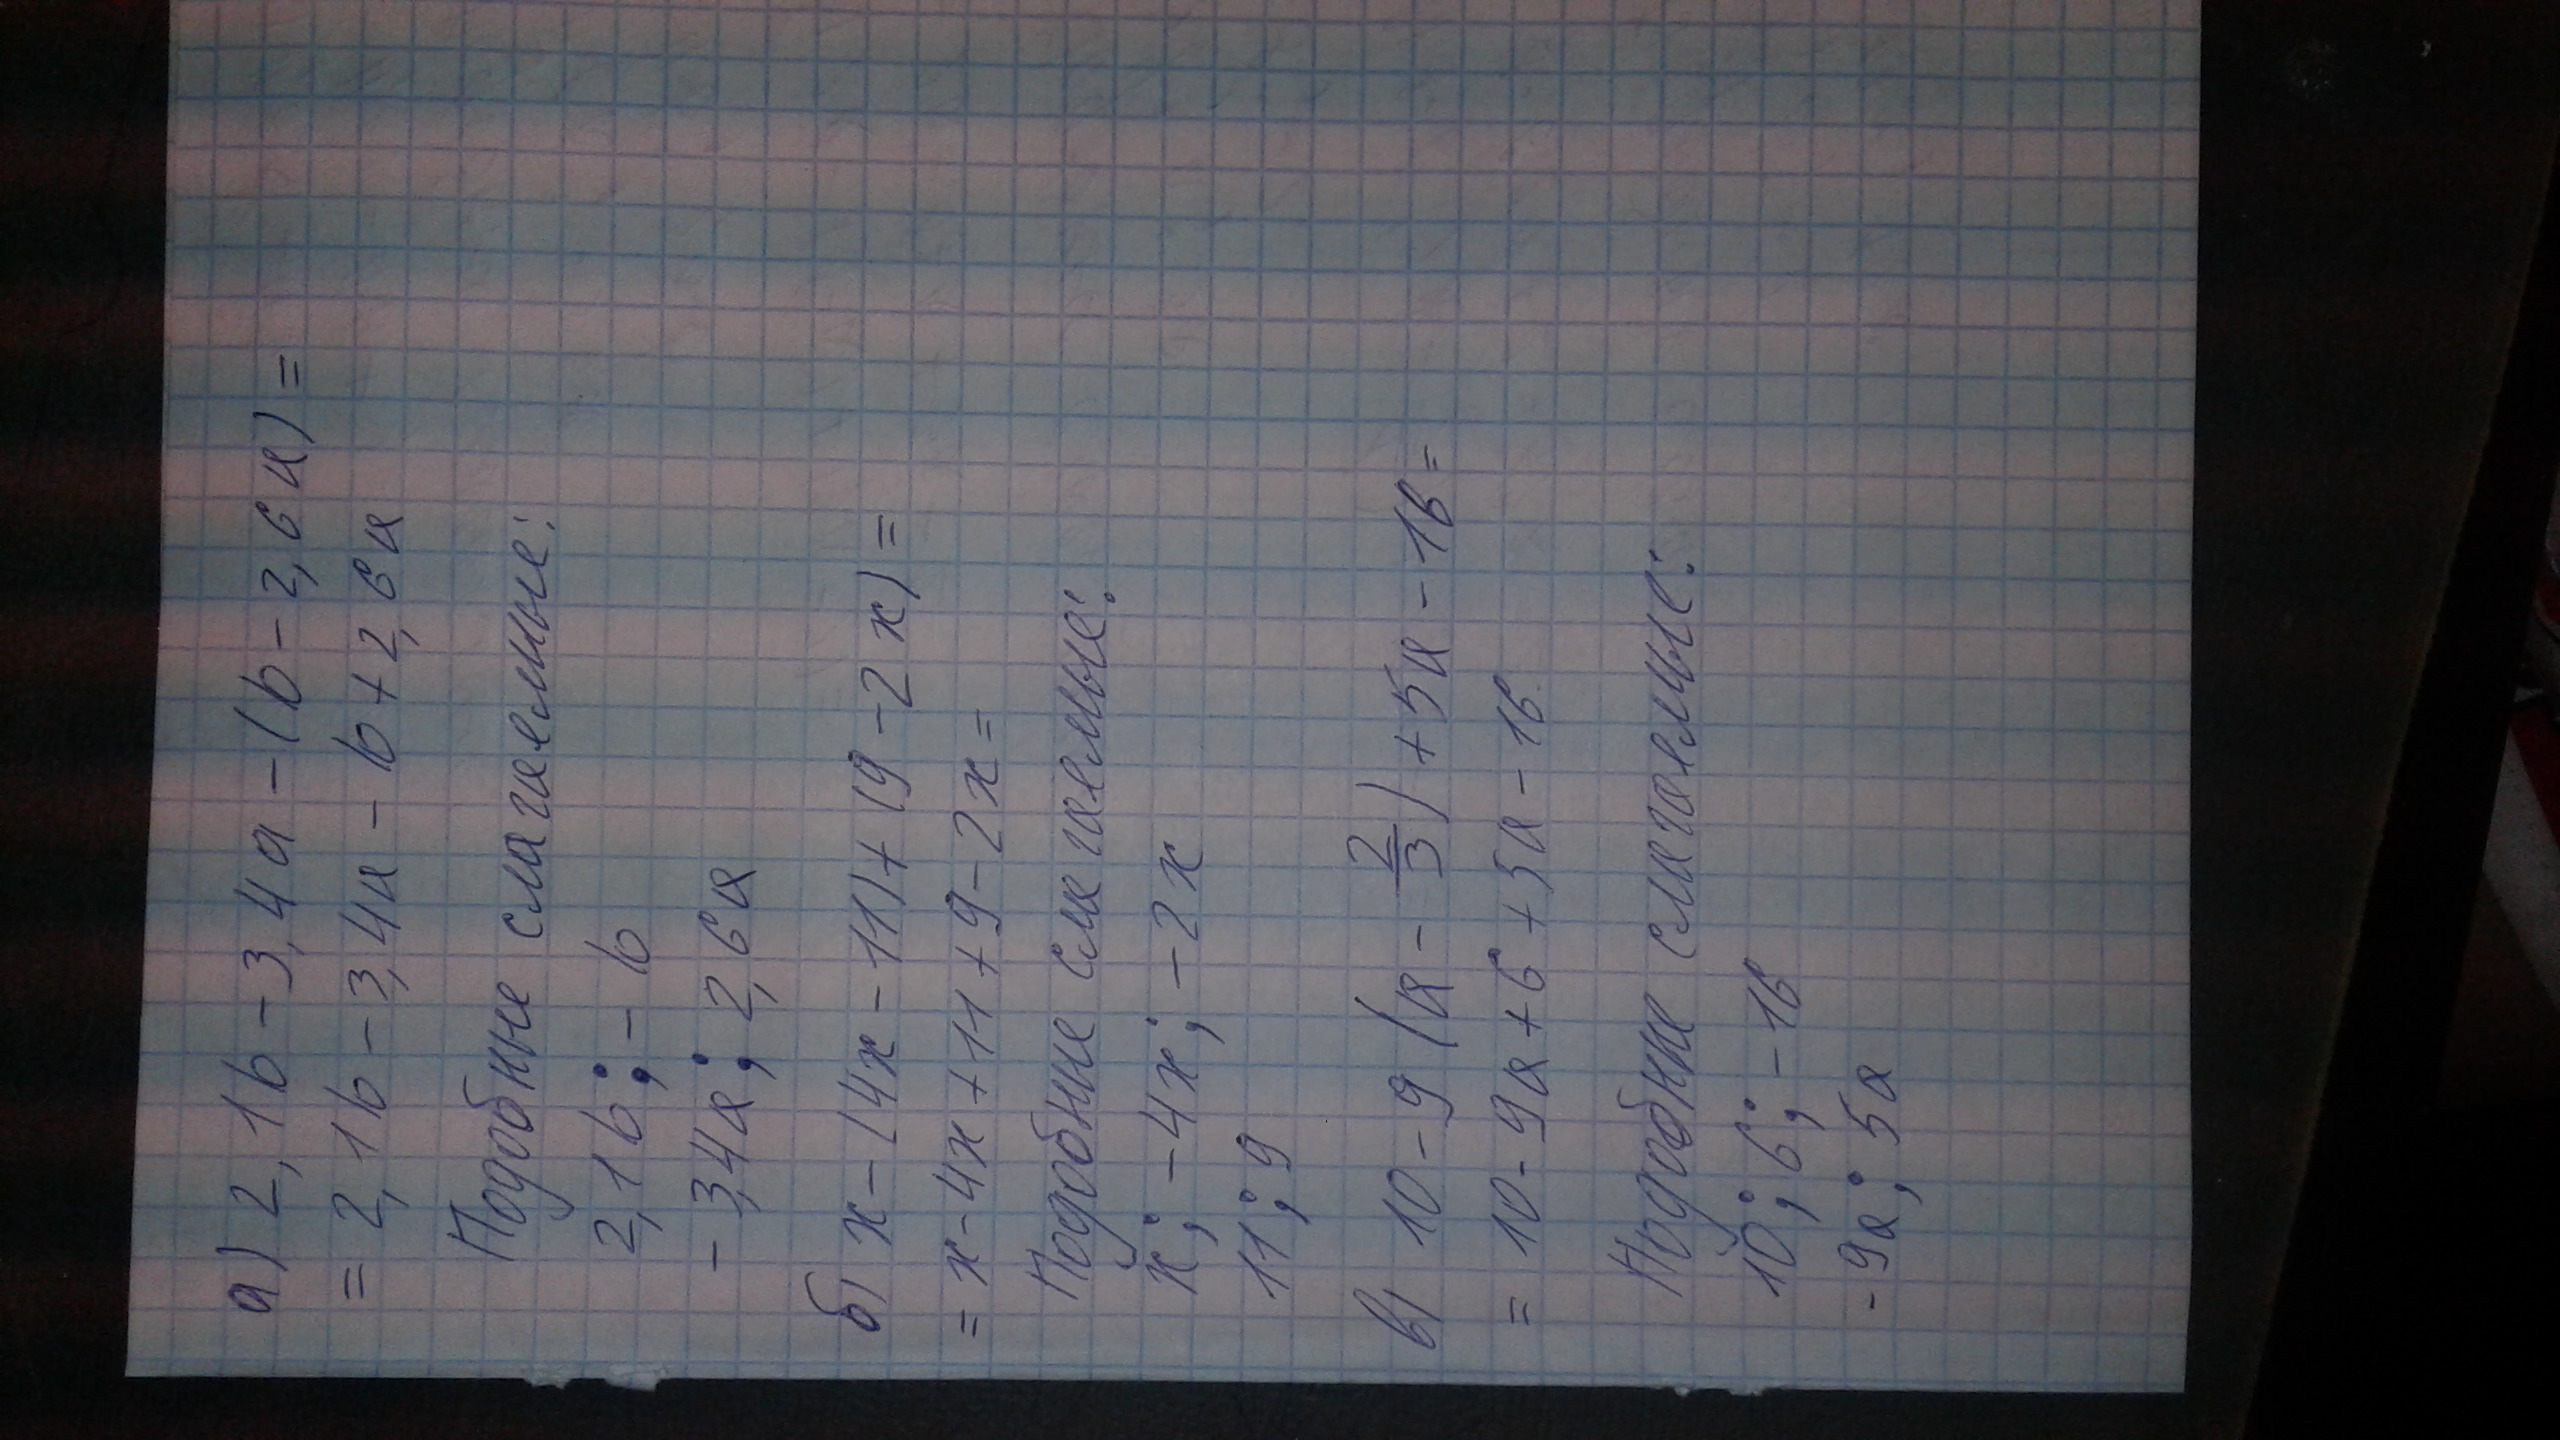 а) 2,1b - 3,4a - (b - 2,6a) =
= 2,1b - 3,4a - b + 2,6a
Подобные слагаемые:
2,1b; - b
- 3,4a; 2,6a
б) x - (4x - 11) + (9 - 2x) =
= x - 4x + 11 + 9 - 2x =
Подобные слагаемые:
x; - 4x; - 2x
11; 9
в) 10 - 9 (a - 2/3) + 5a - 16 =
= 10 - 9a + 6 + 5a - 16
Подобные слагаемые:
10; 6; - 16
- 9a; 5a